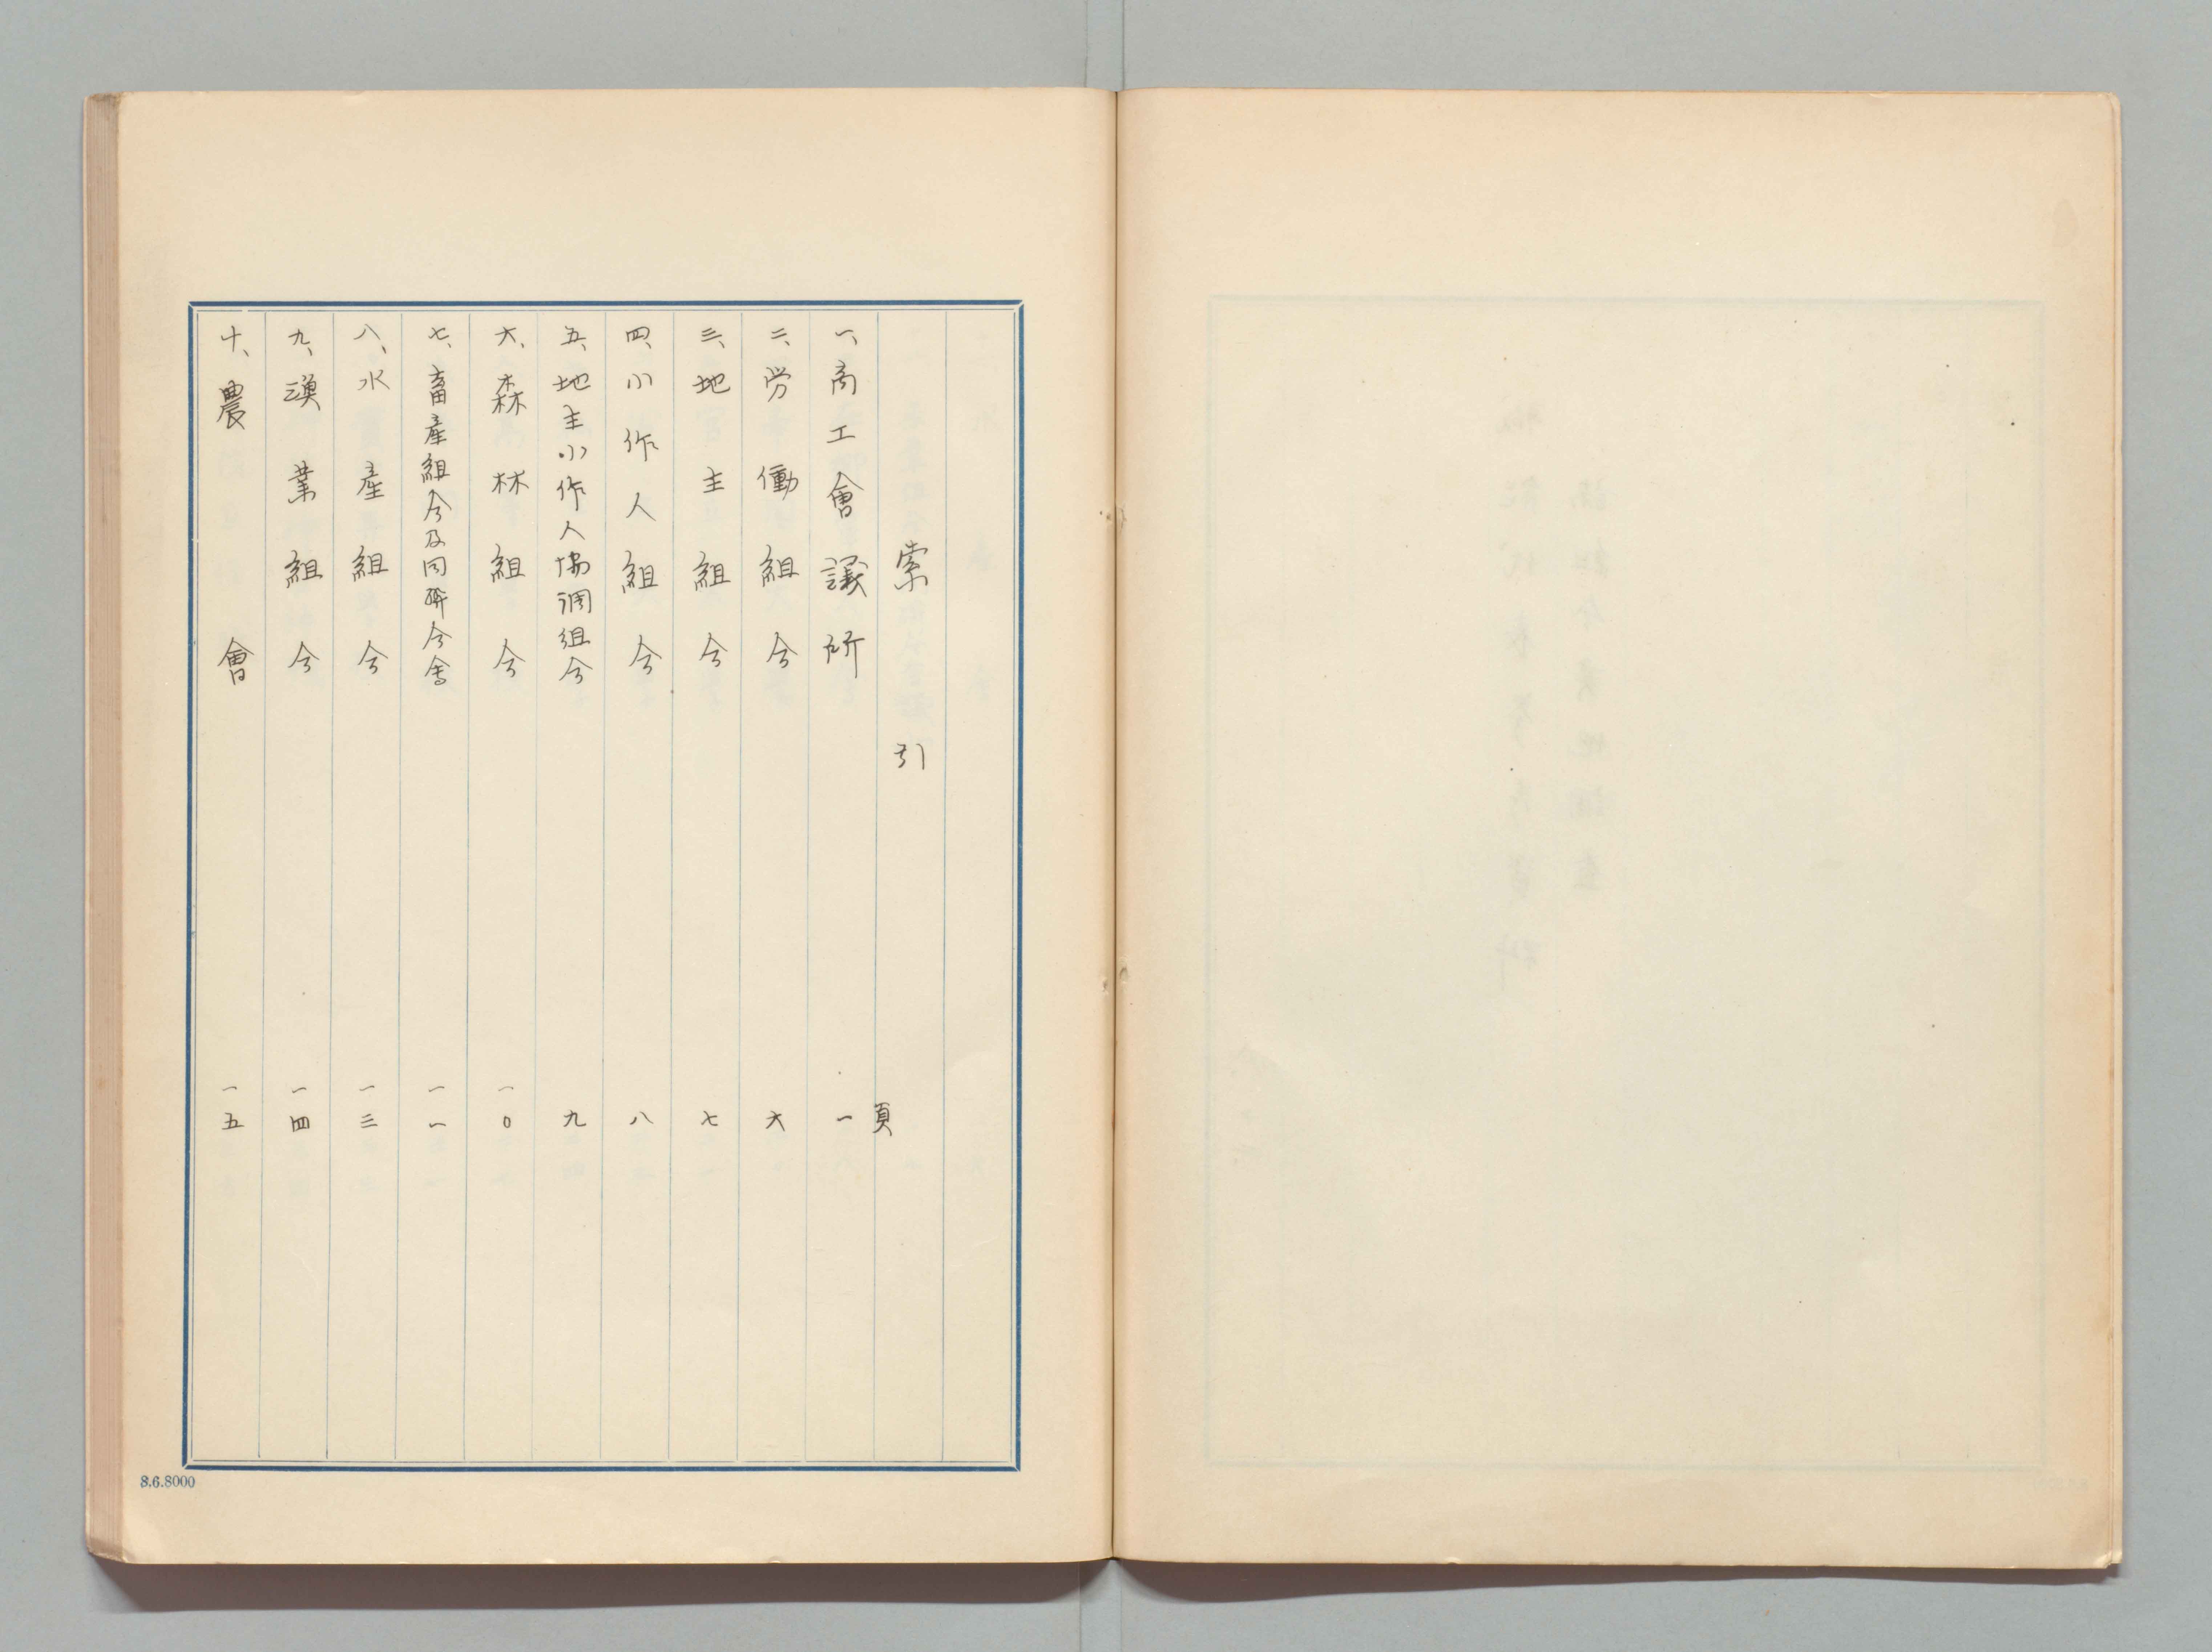 索引
頁
一、商工會議所 一
二、労働組合 六
三、地主組合 七
四、小作人組合 八
五、地主小作人協調組合 九
六、森林組合 一〇
七、畜産組合及同聯合會 一一
八、水産組合 一三
九、漁業組合 一四
十、農會 一五
8.6.8000